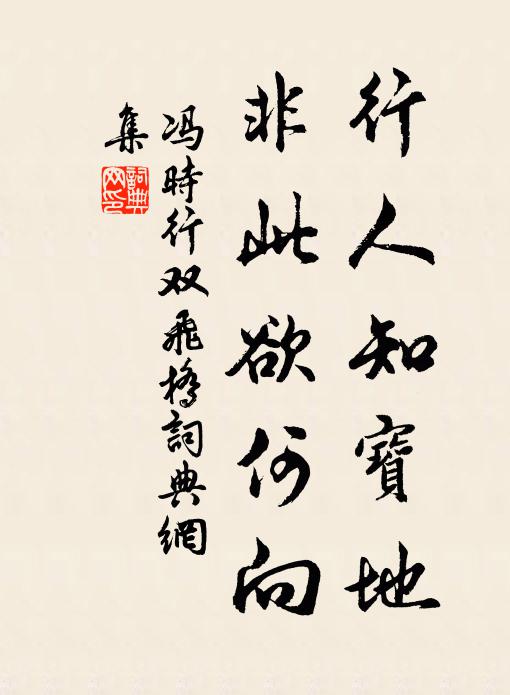 行人知寶地
非此欲何向
冯時行双飛橋詞典網
集
詞典
网印